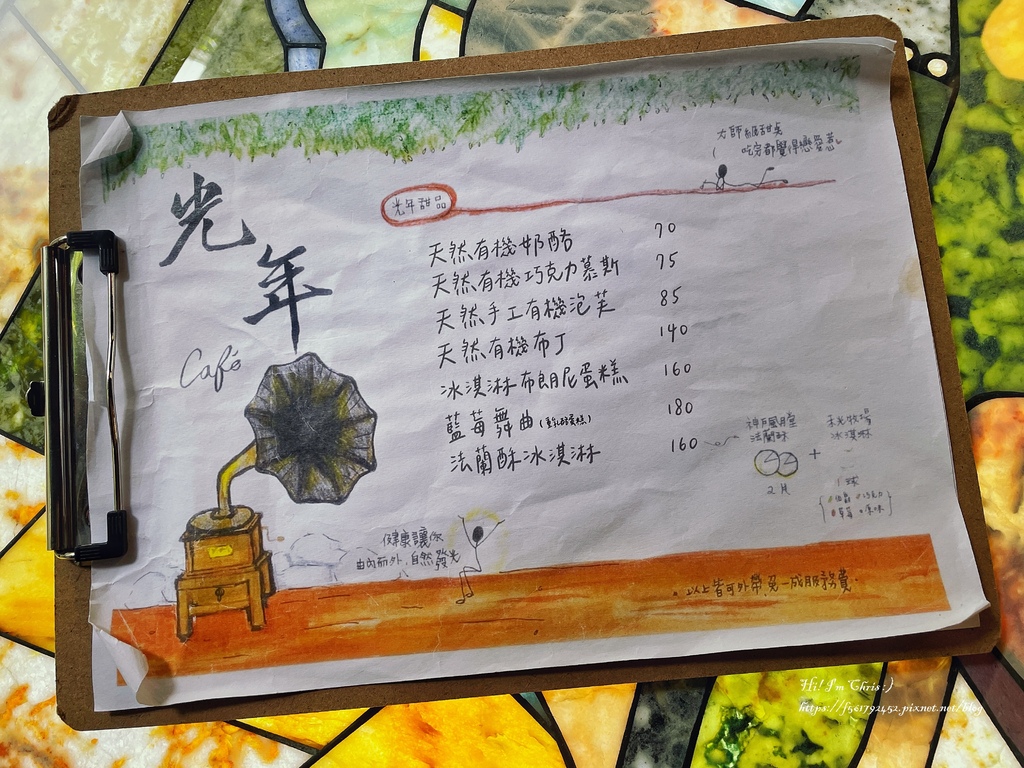 光年
Café
大師級甜臭
吃完都覺得戀愛惹
光年甜品
天然有機奶酪 70
天然有機巧克力慕斯 75
天然手工有機泡芙 85
天然有機布丁 140
冰淇淋布朗尼蛋糕 160
藍莓舞曲 180
法蘭酥冰淇淋 160
神戶風月堂
法蘭酥
2片
+
冰淇淋
1球
草莓
原味
健康讓你
由內而外,自然發光
以上皆可外帶,免一成服務費
Hi! I'm Chris:)
https://f561792452.pixnet.net/blog